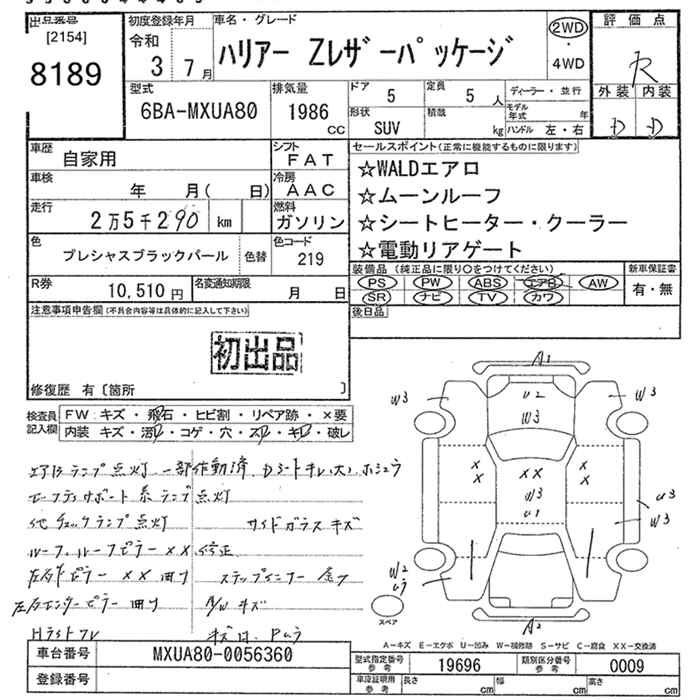 出品番号
[2154]
8189
初度登録年月
令和
3 7月
車名・グレード
ハリアー Zレザーパッケージ
2WD
・
4WD
評価点
R
外装 内装
D D
型式
6BA-MXUA80
排気量
1986
cc
ドア 5
定員 5 人
形状 SUV
積載 kg
ディーラー・並行
モデル年式 年
ハンドル 左・右
車歴
自家用
シフト
FAT
車検
年 月( 日)
冷房
AAC
走行
2万5千290 km
燃料
ガソリン
色
プレシャスブラックパール
色替
色コード
219
R券
10,510円
名変通知期限
月 日
セールスポイント(正常に機能するものに限ります)
☆WALDエアロ
☆ムーンルーフ
☆シートヒーター・クーラー
☆電動リアゲート
装備品 (純正品に限り○をつけてください)
PS PW ABS エアB AW
SR ナビ TV カワ
新車保証書
有・無
後日品
注意事項申告欄(不具合内容等は具体的に記入して下さい)
初出品
修復歴 有〔箇所 〕
検査員
記入欄
FW:キズ・飛石・ヒビ割・リペア跡・×要
内装 キズ・汚レ・コゲ・穴・スレ・キレ・破レ
エアBランプ点灯 一部作動済 Dシートキレ(大)ホシュウ
セーフティサポート系ランプ点灯
他チェックランプ点灯 サイドガラスキズ
ルーフ、ルーフピラー×× 修正
ピラー ×× 曲り ステップインナー
左右センターピラー 曲り A/Wキズ
Hライトスレ
A1
W3
U2
W3
W3
×
×
××
×
×
W3
U1
U3
W3
W2
U3
A2
スペア
A−キズ E−エクボ U−凹み W−補修跡 S−サビ C−腐食 XX−交換済
車台番号
MXUA80-0056360
登録番号
型式指定番号
参考
19696
類別区分番号
参考
0009
車庫証明用
参考
長さ cm
幅 cm
高さ cm